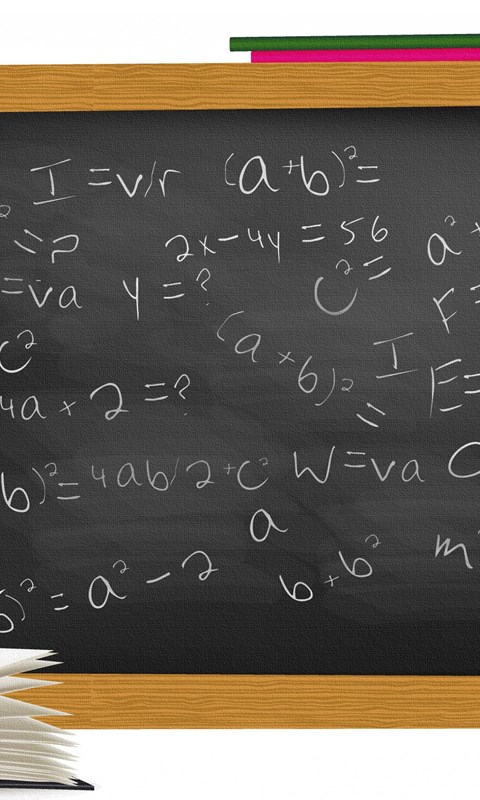 I = v/r (a+b)² =
² = ?
2x - 4y = 56 a² +
= va y = ? c² =
F =
c² (a + b)² = I E =
4a + 2 = ?
b)² = 4ab/2 + c² W = va
a
b + b² m
b)² = a² - 2